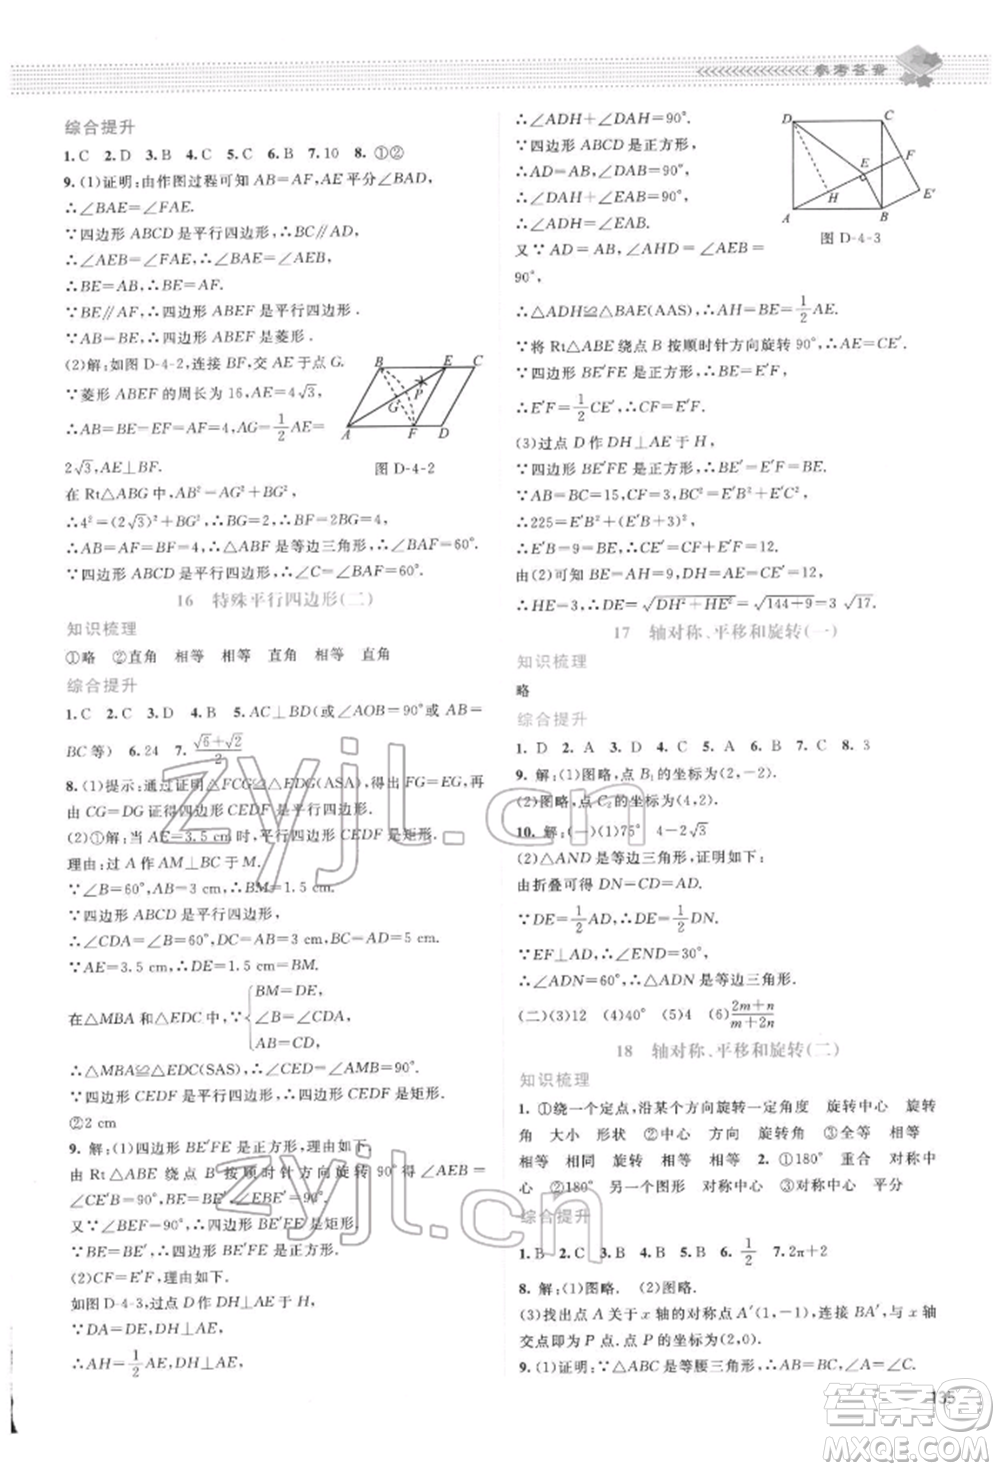 参考答案
综合提升
1. C 2. D 3. B 4. C 5. C 6. B 7. 10 8. ①②
9. (1)证明:由作图过程可知 AB=AF,AE 平分∠BAD,
∴∠BAE=∠FAE.
∵四边形 ABCD 是平行四边形,∴BC∥AD,
∴∠AEB=∠FAE,∴∠BAE=∠AEB,
∴BE=AB,∴BE=AF.
∵BE∥AF,∴四边形 ABEF 是平行四边形.
∵AB=AF,∴四边形 ABEF 是菱形.
(2)解:如图 D-4-2,连接 BF,交 AE 于点 G.
∵菱形 ABEF 的周长为 16,AE=4√3,
∴AB=BE=EF=AF=4,AG=1/2AE=
2√3,AE⊥BF.
B E C P G A F D
图 D-4-2
在 Rt△ABG 中,AB²=AG²+BG²,
∴4²=(2√3)²+BG²,∴BG=2,∴BF=2BG=4,
∴AB=AF=BF=4,∴△ABF 是等边三角形,∴∠BAF=60°.
∵四边形 ABCD 是平行四边形,∴∠C=∠BAF=60°.
16 特殊平行四边形(二)
知识梳理
①略 ②直角 相等 相等 直角 相等 直角
综合提升
1. C 2. C 3. D 4. B 5. AC⊥BD(或∠AOB=90°或 AB=
BC 等) 6. 24 7. (√6+√2)/2
8. (1)提示:通过证明△FCG≌△EDG(ASA),得出 FG=EG,再
由 CG=DG 证得四边形 CEDF 是平行四边形.
(2)①解:当 AE=3.5 cm 时,平行四边形 CEDF 是矩形.
理由:过 A 作 AM⊥BC 于 M.
∵∠B=60°,AB=3 cm,∴BM=1.5 cm.
∵四边形 ABCD 是平行四边形,
∴∠CDA=∠B=60°,DC=AB=3 cm,BC=AD=5 cm.
∵AE=3.5 cm,∴DE=1.5 cm=BM.
在△MBA 和△EDC 中,∵{BM=DE, ∠B=∠CDA, AB=CD,
∴△MBA≌△EDC(SAS),∴∠CED=∠AMB=90°.
∵四边形 CEDF 是平行四边形,∴四边形 CEDF 是矩形.
②2 cm
9. 解:(1)四边形 BE′FE 是正方形,理由如下:
由 Rt△ABE 绕点 B 按顺时针方向旋转 90°,得∠AEB=
∠CE′B=90°,BE=BE′,∠EBE′=90°.
又∵∠BEF=90°,∴四边形 BE′FE 是矩形.
∵BE=BE′,∴四边形 BE′FE 是正方形.
(2)CF=E′F,理由如下.
如图 D-4-3,过点 D 作 DH⊥AE 于点 H.
∵DA=DE,DH⊥AE,
∴AH=1/2AE,DH⊥AE,
∴∠ADH+∠DAH=90°.
∵四边形 ABCD 是正方形,
∴AD=AB,∠DAB=90°,
∴∠DAH+∠EAB=90°,
∴∠ADH=∠EAB.
又∵AD=AB,∠AHD=∠AEB=
90°,
D C E F H A B E′
图 D-4-3
∴△ADH≌△BAE(AAS),∴AH=BE=1/2AE.
∵将 Rt△ABE 绕点 B 按顺时针方向旋转 90°,∴AE=CE′.
∵四边形 BE′FE 是正方形,∴BE=E′F,
∴E′F=1/2CE′,∴CF=E′F.
(3)过点 D 作 DH⊥AE 于 H,
∵四边形 BE′FE 是正方形,∴BE′=E′F=BE.
∵AB=BC=15,CF=3,BC²=E′B²+E′C²,
∴225=E′B²+(E′B+3)²,
∴E′B=9=BE,∴CE′=CF+E′F=12.
由(2)可知 BE=AH=9,DH=AE=CE′=12,
∴HE=3,∴DE=√(DH²+HE²)=√(144+9)=3√17.
17 轴对称、平移和旋转(一)
知识梳理
略
综合提升
1. D 2. A 3. D 4. C 5. A 6. B 7. C 8. 3
9. 解:(1)图略,点 B₁ 的坐标为(2,-2).
(2)图略,点 C₂ 的坐标为(4,2).
10. 解:(一)(1)75° 4-2√3
(2)△AND 是等边三角形,证明如下:
由折叠可得 DN=CD=AD,
∵DE=1/2AD,∴DE=1/2DN.
∵EF⊥AD,∴∠END=30°,
∴∠ADN=60°,∴△ADN 是等边三角形.
(二)(3)12 (4)40° (5)4 (6)(2m+n)/(m+2n)
18 轴对称、平移和旋转(二)
知识梳理
1. ①绕一个定点,沿某个方向旋转一定角度 旋转中心 旋转
角 大小 形状 ②中心 方向 角度 ③全等 相等
相等 相同 旋转 相等 相等 2. ①180° 重合 对称中
心 ②180° 另一个图形 对称中心 ③对称中心 平分
综合提升
1. B 2. C 3. C 4. B 5. B 6. 1/2 7. 2π+2
8. 解:(1)图略. (2)图略.
(3)找出点 A 关于 x 轴的对称点 A′(1,-1),连接 BA′,与 x 轴
交点即为 P 点. 点 P 的坐标为(2,0).
9. (1)证明:∵△ABC 是等腰三角形,∴AB=BC,∠A=∠C.
135
zyjl.cn
zyjl.cn
答案圈
MXQE.COM